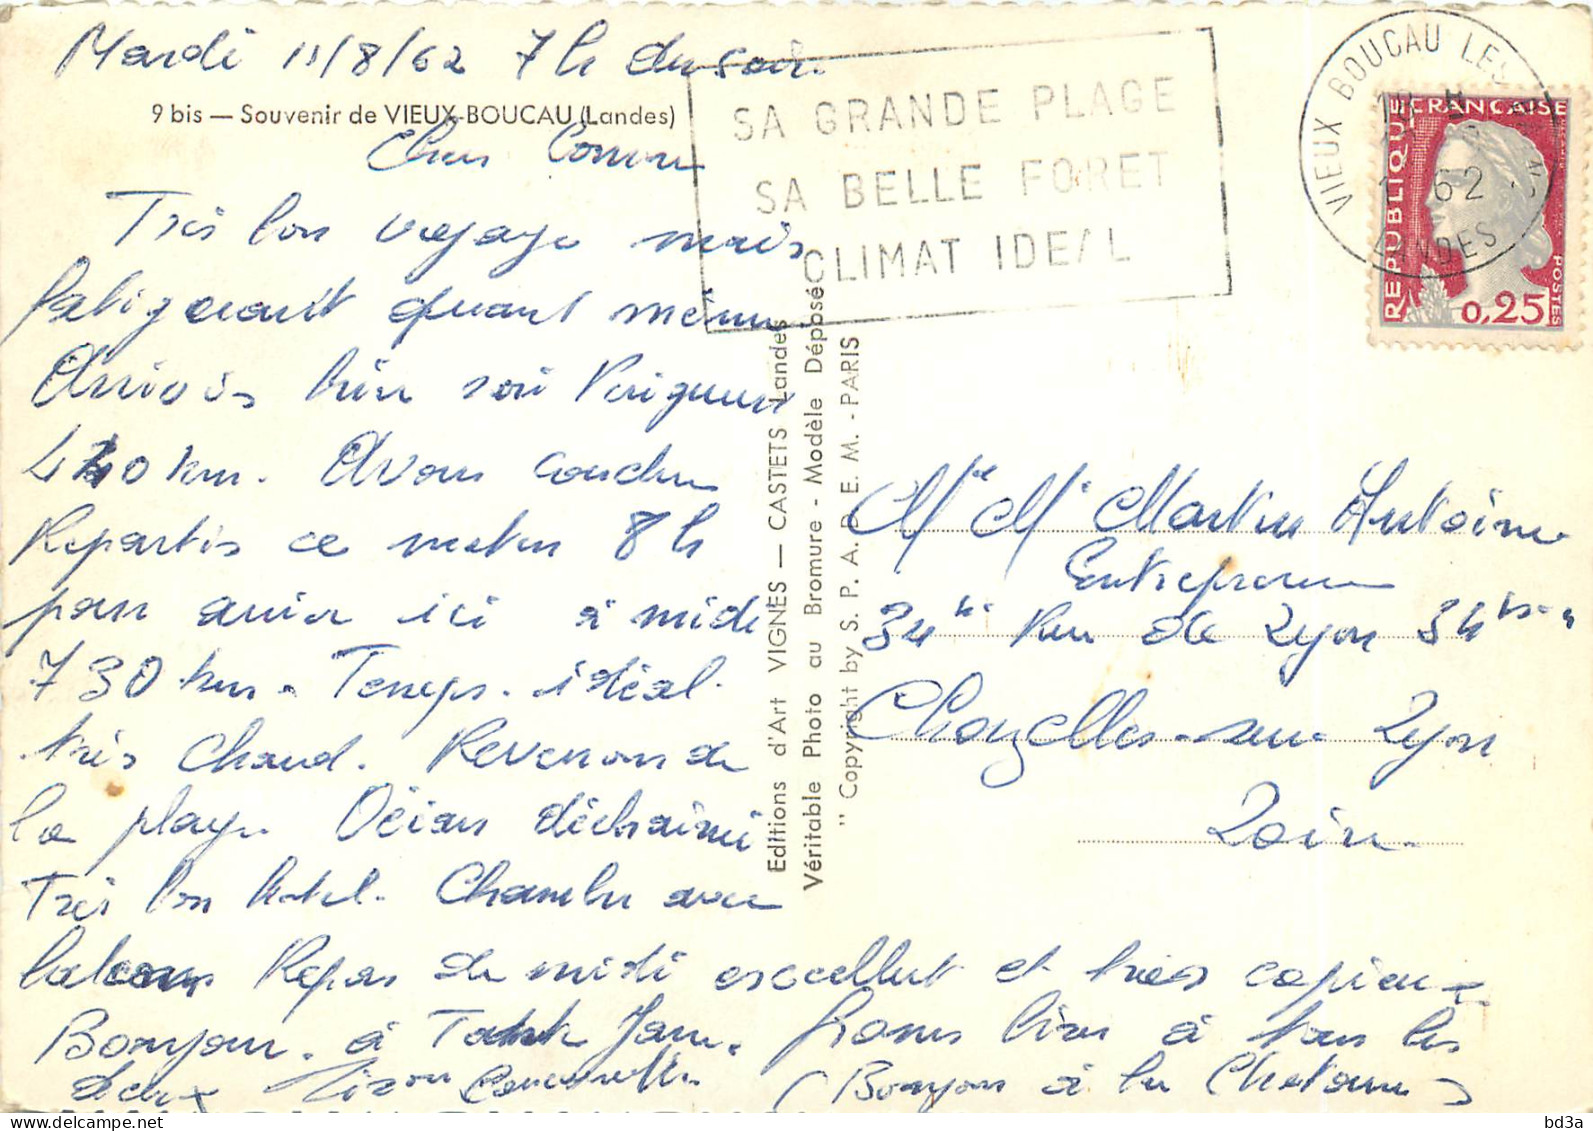 Mardi 11/8/62 7h du soir.
9 bis — Souvenir de VIEUX-BOUCAU (Landes)
Chers
Très bon voyage mais
fatiguant quand même
Arrivés hier soir Périgueux
km. Avons couché
Repartis ce matin 8h
pour arriver ici à midi
730 km. Temps idéal
très chaud. Revenons de
la plage. Océan déchainé
Très bon hotel. Chambre avec
balcon Repas de midi excellent et très copieux
Bonjour à Jane. bises à tous les
deux (Bonjour à la
SA GRANDE PLAGE
SA BELLE FORET
CLIMAT IDEAL
VIEUX BOUCAU LES
18 H
62
LANDES
REPUBLIQUE FRANÇAISE
POSTES
0,25
Editions d'Art VIGNES — CASTETS Landes
Véritable Photo au Bromure - Modèle Déposé
" Copyright by S. P. A. D. E. M. - PARIS
Mr Me Martin Antoine
Entrepreneur
34 bis Rue de Lyon 34 bis
Chazelles-sur-Lyon
Loire
bd3a